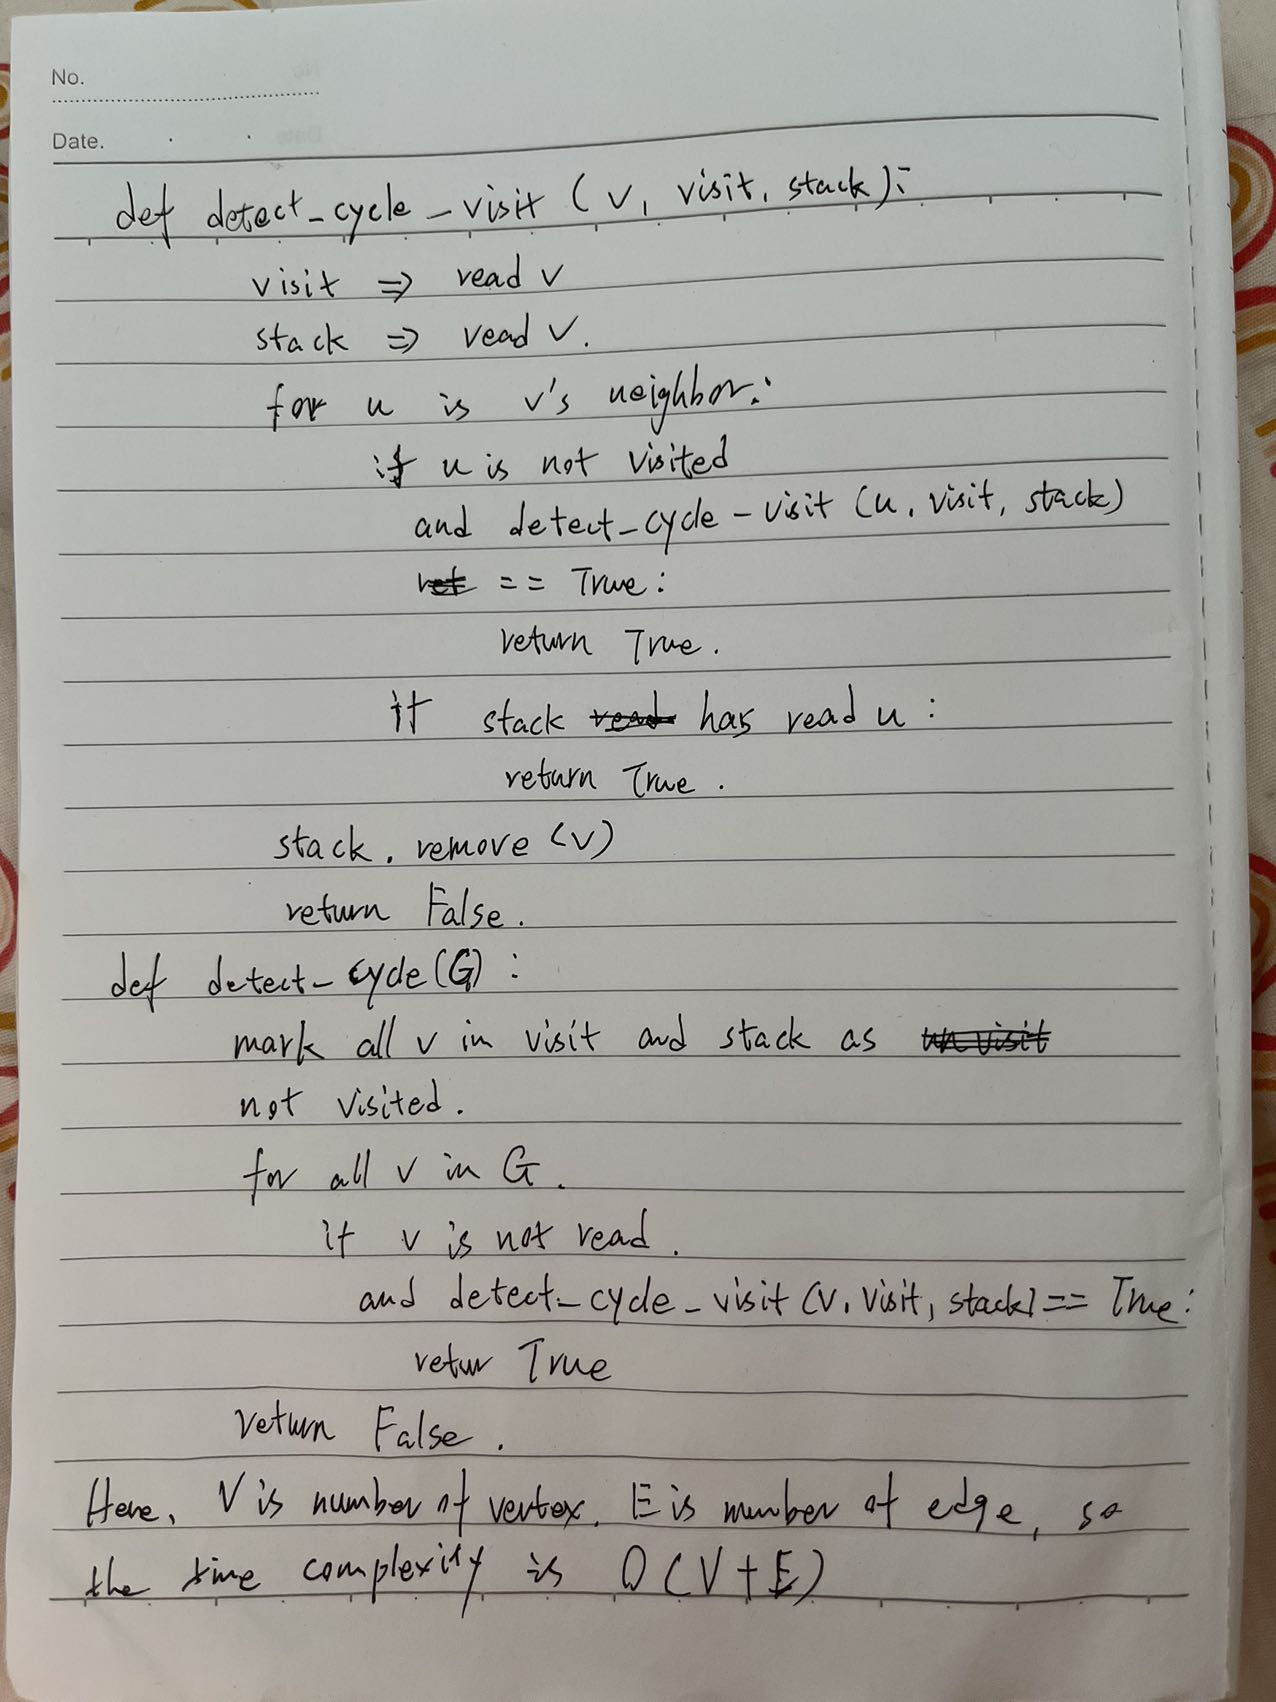 No.
Date.
def detect_cycle_visit (v, visit, stack):
visit => read v
stack => read v.
for u is v's neighbor:
if u is not visited
and detect_cycle_visit (u, visit, stack)
== True:
return True.
if stack has read u:
return True.
stack. remove (v)
return False.
def detect_cycle(G):
mark all v in visit and stack as
not visited.
for all v in G.
if v is not read.
and detect_cycle_visit (v, visit, stack) == True:
retur True
return False.
Here, V is number of vertex. E is number of edge, so
the time complexity is O(V+E)